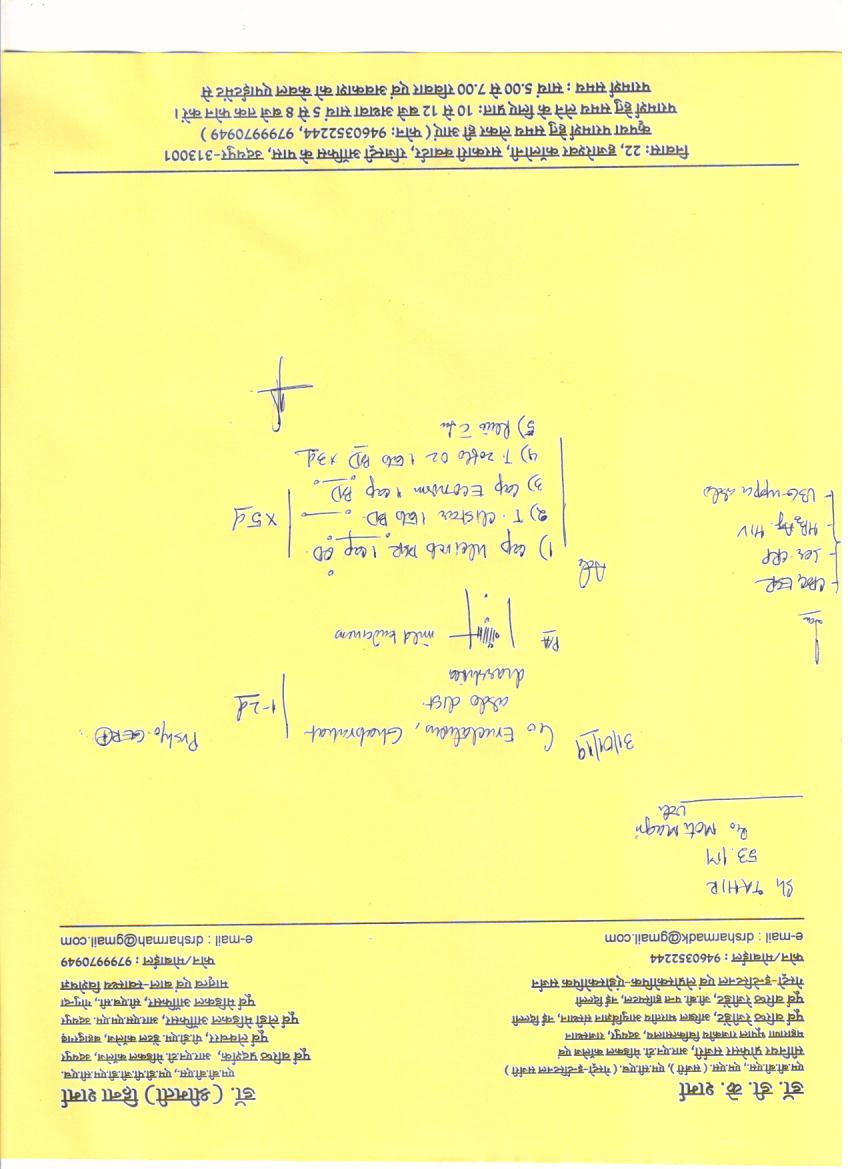 डॉ. डी. के. शर्मा
एम.बी.बी.एस., एम.एस. ( सर्जरी ), एम.सी.एच. ( गेस्ट्रो-इन्टेस्टिनल सर्जरी )
सीनियर प्रोफेसर सर्जरी, आर.एन.टी. मेडिकल कॉलेज एवं
महाराणा भूपाल राजकीय चिकित्सालय, उदयपुर, राजस्थान
पूर्व वरिष्ठ रेजीडेंट, अखिल भारतीय आयुर्विज्ञान संस्थान, नई दिल्ली
पूर्व वरिष्ठ रेजीडेंट, जी.बी. पन्त हॉस्पिटल, नई दिल्ली
गेस्ट्रो-इन्टेस्टिनल एवं लेप्रोस्कोपिक-एंडोस्कोपिक सर्जन
फोन/मोबाईल : 9460352244
e-mail : drsharmadk@gmail.com
डॉ. ( श्रीमती ) हिना शर्मा
एम.बी.बी.एस., एम.डी.पी.जी.डी.एम.सी.एच.
पूर्व वरिष्ठ प्रदर्शक, आर.एन.टी. मेडिकल कॉलेज, उदयपुर
पूर्व लेक्चरर, पी.डी.एम. डेंटल कॉलेज, बहादुरगढ़
पूर्व लेडी मेडिकल ऑफिसर, आर.एस.एम.एम. उदयपुर
पूर्व मेडिकल ऑफिसर, सी.एच.सी., गोगुन्दा
मातृत्व एवं बाल-स्वास्थ्य विशेषज्ञ
फोन/मोबाईल : 9799970949
e-mail : drsharmah@gmail.com
Sh. TAHIR
53/M
R/o Moti Magri
Udr
31/01/19
C/o Eructations, Ghabrahat
abdo dist.
diarrhoea
1-2d
P/A
mild
Adv
CBC, ESR
Ser. CRP
HBsAg, HIV
USG upper abdo
1) Cap 1 cap OD
2) T. 1 tab BD
3) Cap Econorm 1 cap BD
× 5d
4) T. Zoflo OZ 1 tab BD × 3d
5)
निवास: 22, हजारेश्वर कॉलोनी, सरकारी क्वार्टर, रजिस्ट्री ऑफिस के पास, उदयपुर-313001
कृपया परामर्श हेतु समय लेकर ही आएं ( फोन: 9460352244, 9799970949 )
परामर्श हेतु समय लेने के लिए प्रातः 10 से 12 बजे अथवा सायं 5 से 8 बजे तक फोन करें।
परामर्श समय : सायं 5.00 से 7.00 रविवार एवं अवकाश को केवल एपाइंटमेंट से